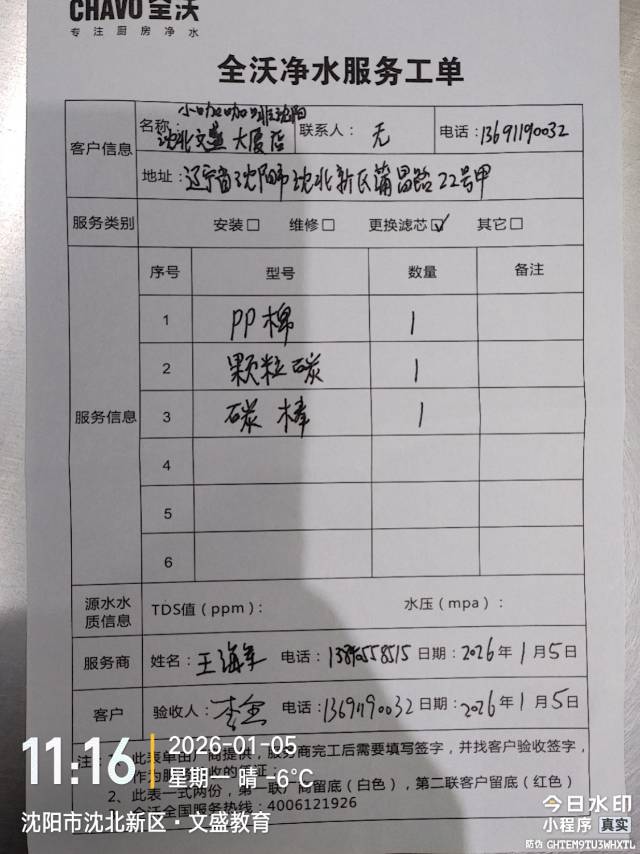 CHAVO 全沃
专注厨房净水
全沃净水服务工单
客户信息
名称: 小咖咖啡沈阳沈北文盛大厦店 联系人: 无 电话: 13691190032
地址: 辽宁省沈阳市沈北新区蒲昌路22号甲
服务类别 安装□ 维修□ 更换滤芯☑ 其它□
服务信息
序号 型号 数量 备注
1 PP棉 1
2 颗粒碳 1
3 碳棒 1
4
5
6
源水水质信息 TDS值(ppm): 水压(mpa):
服务商 姓名: 王海军 电话: 日期: 2026年1月5日
客户 验收人: 电话: 13691190032 日期: 2026年1月5日
注: 1、此表单由厂商提供,服务商完工后需要填写签字,并找客户验收签字,
作为服务验收的凭证;
2、此表一式两份,第一联厂商留底(白色),第二联客户留底(红色)
全沃全国服务热线: 4006121926
11:16
2026-01-05
星期一 晴 -6℃
沈阳市沈北新区·文盛教育
今日水印
小程序 真实
防伪 GHTEM9TU3WHXTL